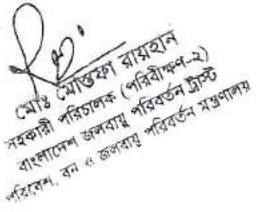 মোঃ মোস্তফা রায়হান
সহকারী পরিচালক (পরিবীক্ষণ-২)
বাংলাদেশ জলবায়ু পরিবর্তন ট্রাস্ট
পরিবেশ, বন ও জলবায়ু পরিবর্তন মন্ত্রণালয়